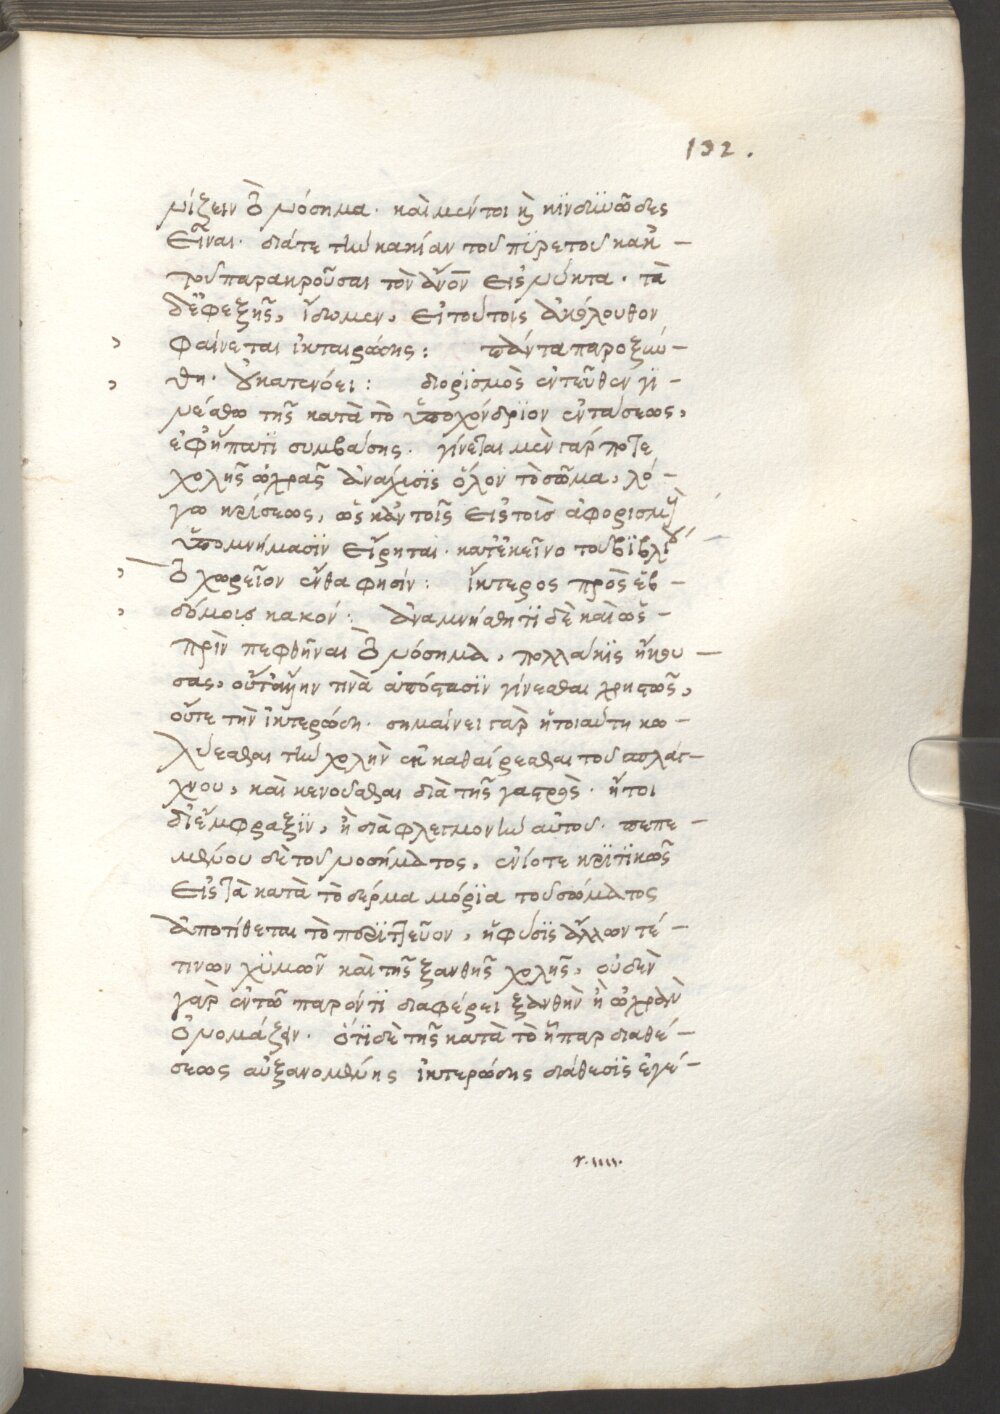 132.
μίζειν τὸ νόσημα· καὶ μέντοι κὴ κϊνδυνῶδες
εἶναι· διάτε τὴν κακίαν τοῦ πυρετοῦ καὶ
τοῦ παρακροῦσαι τὸν ἄνον εἰς νύκτα· τὰ
δ' ἐφεξῆς, ἴδωμεν, εἰ τούτοις ἀκόλουθον
φαίνεται ἰκταιρώσης: πάντα παροξύν-
θη· οὐ κατενόει: διορϊσμὸς ἐντεῦθεν γϊ-
νέσθω τῆς κατὰ τὸ ὑποχόνδρϊον ἐντάσεως,
ἐφ' ἥπατϊ συμβάσης· γίνεται μὲν γάρ ποτε
χολῆς ὠχρᾶς ἀνάχυσϊς εἰς ὅλον τὸ σῶμα, λό-
γω κρίσεως, ὡς κἀν τοῖς εἰς τοὺς ἀφορισμοὺς
ὑπομνήμασϊν εἴρηται· κατ' ἐκεῖνο τοῦ βϊβλίου
τὸ χωρεῖον ἔνθα φησίν: ἴκτερος πρὸς ἑβ-
δόμοις κακόν: ἀναμνήσθητϊ δὲ καὶ ὡς
πρὶν πεφθῆναι τὸ νόσημα, πολλάκϊς ἤκου-
σας, οὔτ' ἄλλην τινὰ ἀπόστασϊν γίνεσθαι χρηστῶς,
οὔτε τὴν ἰκτερώδη· σημαίνει γὰρ ἡ τοιαύτη κω-
λύεσθαι τὴν χολὴν ἐκκαθαίρεσθαι τοῦ σπλάγ-
χνου, καὶ κενοῦσθαι διὰ τῆς γαστρός· ἤτοι
δι' ἔμφραξϊν, ἢ διὰ φλεγμονὴν αὐτοῦ· πεπε-
μμένου δὲ τοῦ νοσήματος, ἐνίοτε κρϊτϊκῶς
εἰς τὰ κατὰ τὸ δέρμα μόρϊα τοῦ σώματος
ἀποτίθεται τὸ περϊττεῦον, ἡ φύσϊς ἄλλων τέ-
τινων χϋμῶν καὶ τῆς ξανθῆς χολῆς, οὐδὲν
γὰρ ἐν τῶ παρόντϊ διαφέρει ξανθὴν ἢ ὠχρὰν
ὀνομάζειν· ὅτϊ δὲ τῆς κατὰ τὸ ἧπαρ διαθέ-
σεως αὐξανομένης ἰκτερώδης διάθεσϊς ἐγέ-